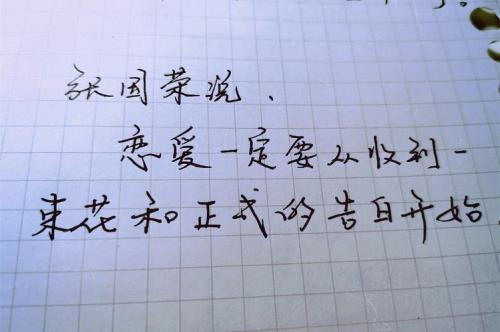 张国荣说、
恋爱一定要从收到一
束花和正式的告白开始